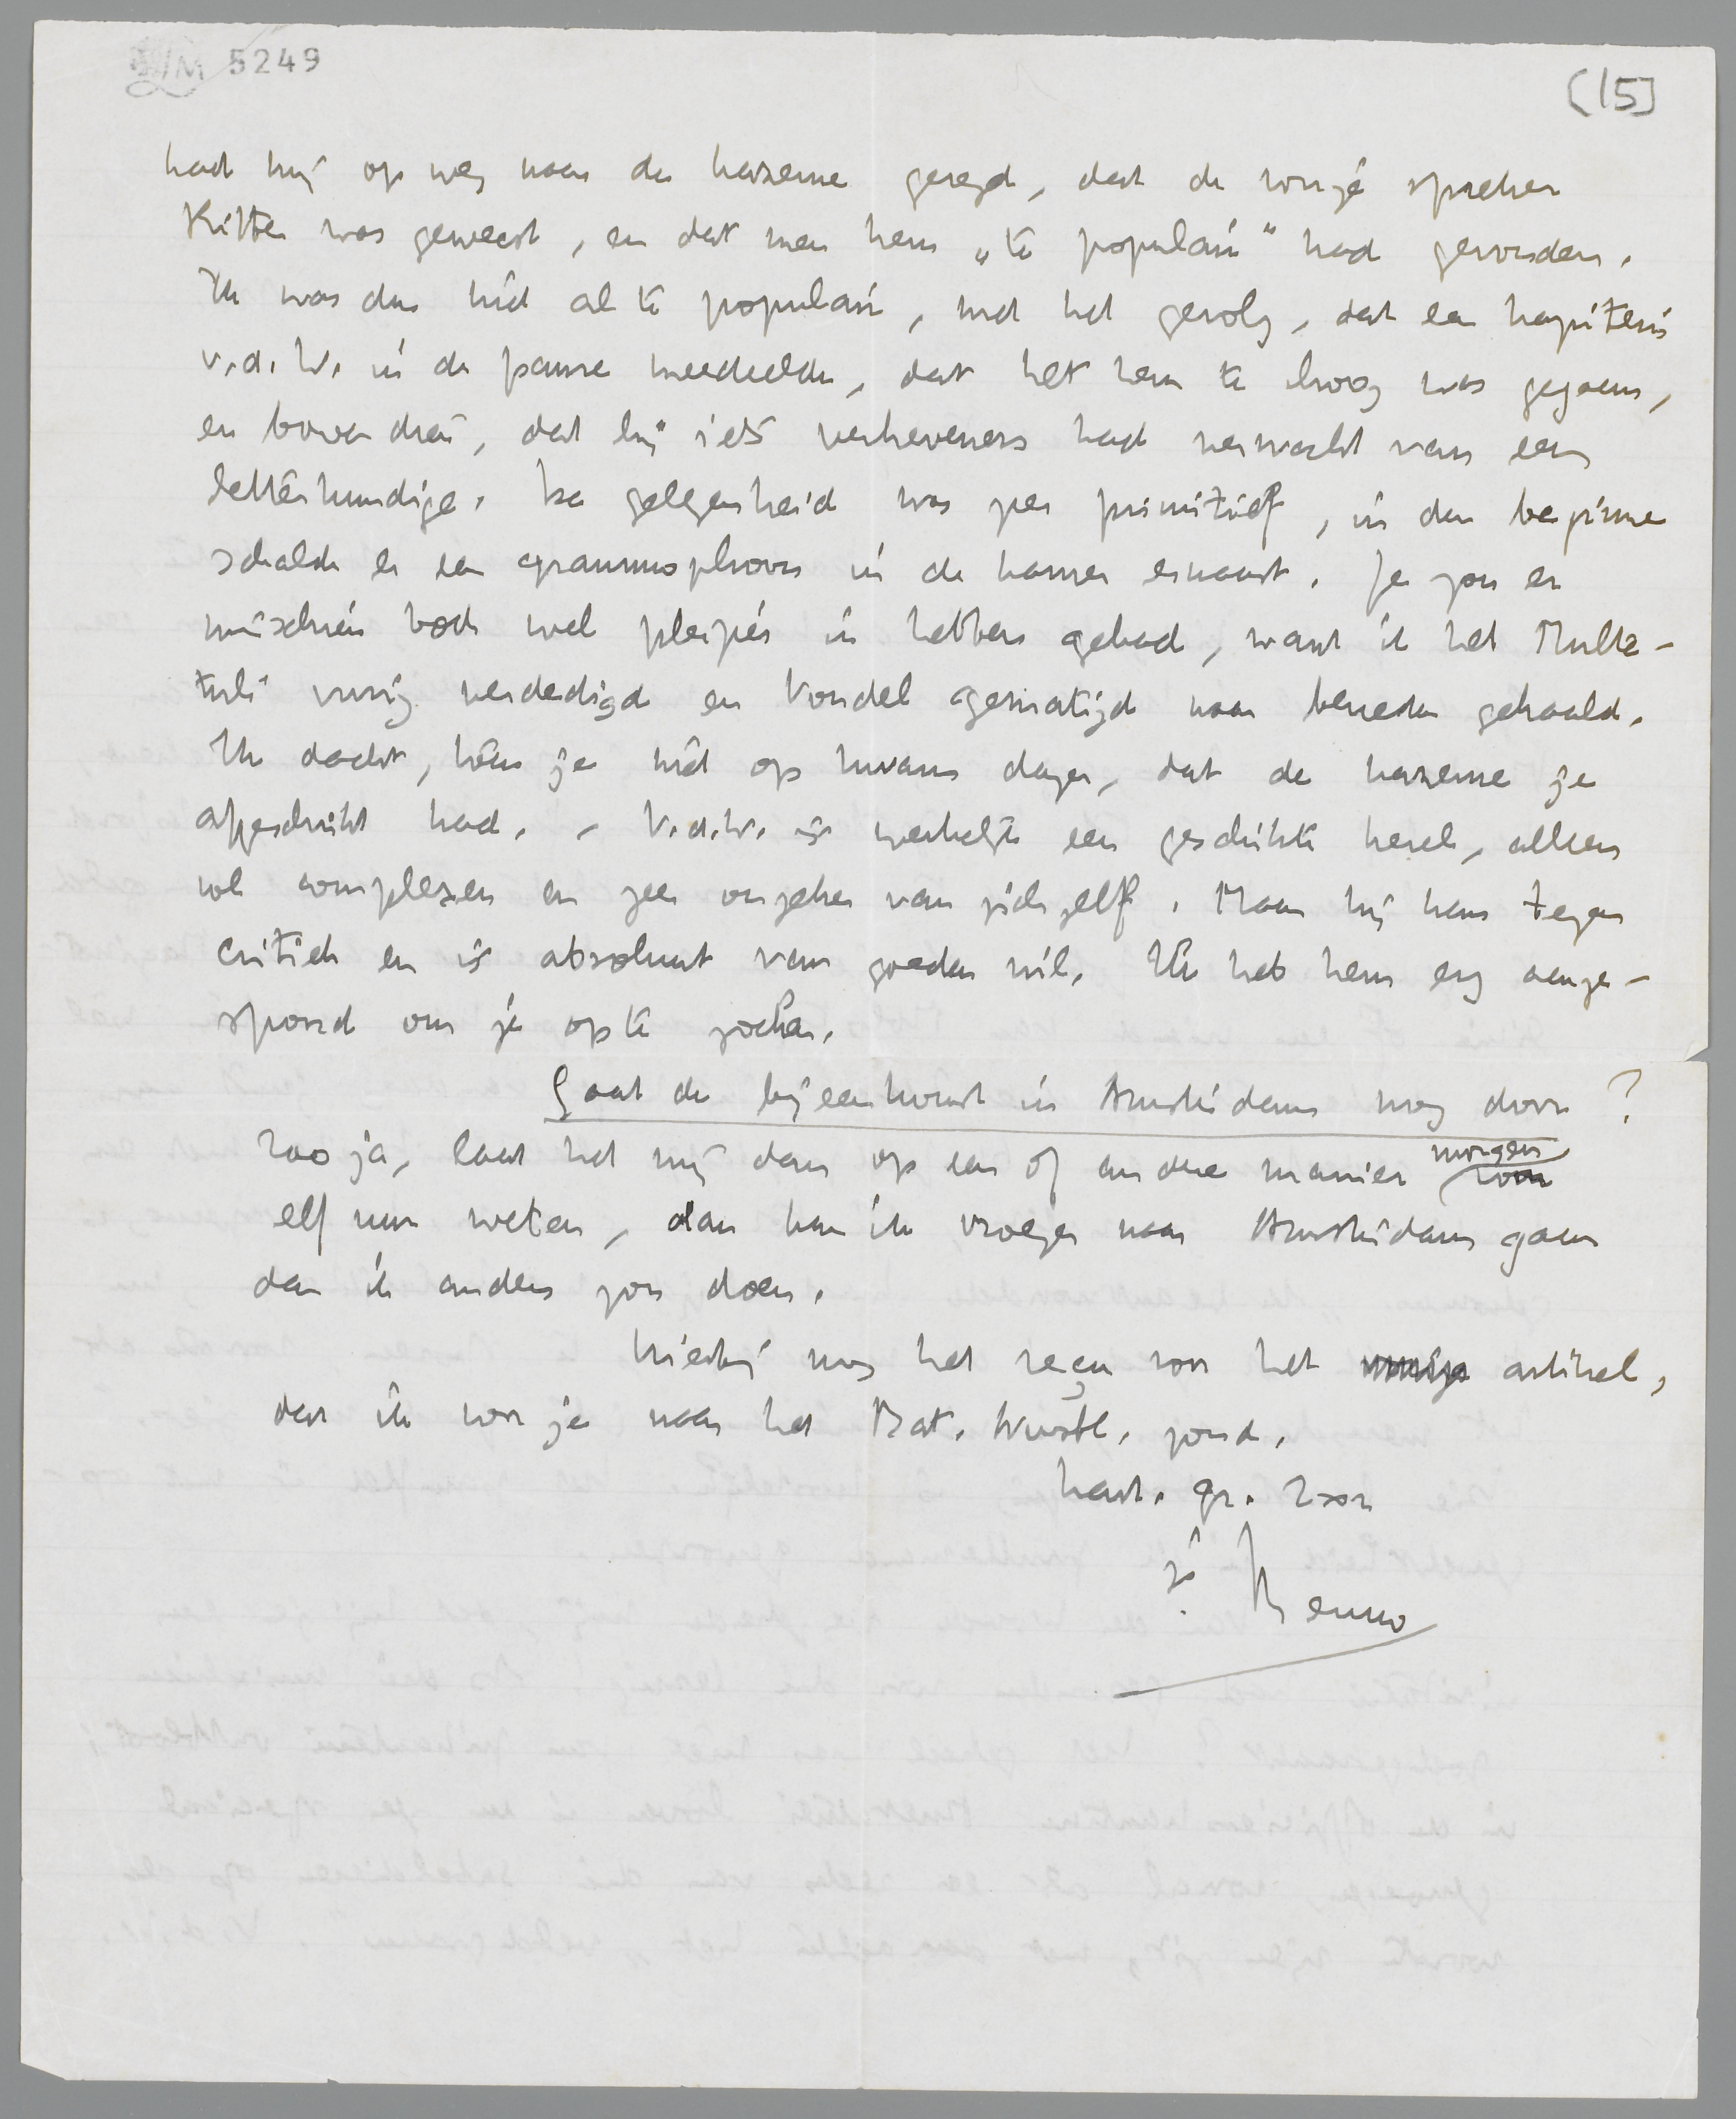 LM 5249
[15]
had mij op weg naar de kazerne gezegd, dat de vorige spreker
Ritter was geweest, en dat men hem „te populair" had gevonden.
Ik was dus niet al te populair, met het gevolg, dat een kapitein
v.d.W. in de pauze meedeelde, dat het hem te hoog was gegaan,
en bovendien, dat hij iets verheveners had verwacht van een
letterkundige. De gelegenheid was zeer primitief, in den beginne
schalde er een grammophoon in de kamer ernaast. Je zou er
misschien toch wel plezier in hebben gehad, want ik heb Multa-
tuli vurig verdedigd en Vondel gematigd naar beneden gehaald.
Ik dacht, toen je niet op kwam dagen, dat de kazerne je
afgeschrikt had. - V.d.W. is werkelijk een geschikte kerel, alleen
vol complexen en zeer onzeker van zichzelf. Maar hij kan tegen
critiek en is absoluut van goeden wil. Ik heb hem erg aange-
spoord om je op te zoeken.
Gaat de bijeenkomst in Amsterdam nog door?
Zoo ja, laat het mij dan op een of andere manier morgen voor
elf uur weten, dan kan ik vroeger naar Amsterdam gaan
dan ik anders zou doen.
Hierbij nog het reçu voor het artikel,
dat ik voor je naar het Bat. Nwsbl. zond.
hart. gr. 2 x x
je Menno